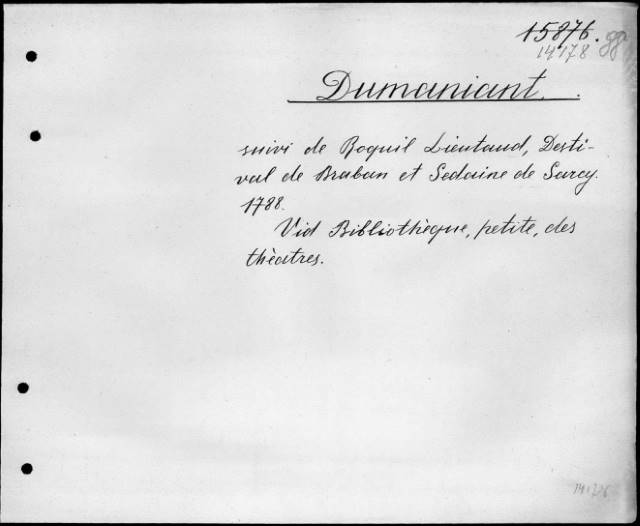 15876.
14178 gg
Dumaniant.
suivi de Roquil Lieutaud, Desti-
val de Braban et Sedaine de Sarcy.
1788.
Vid Bibliothèque, petite, des
théatres.